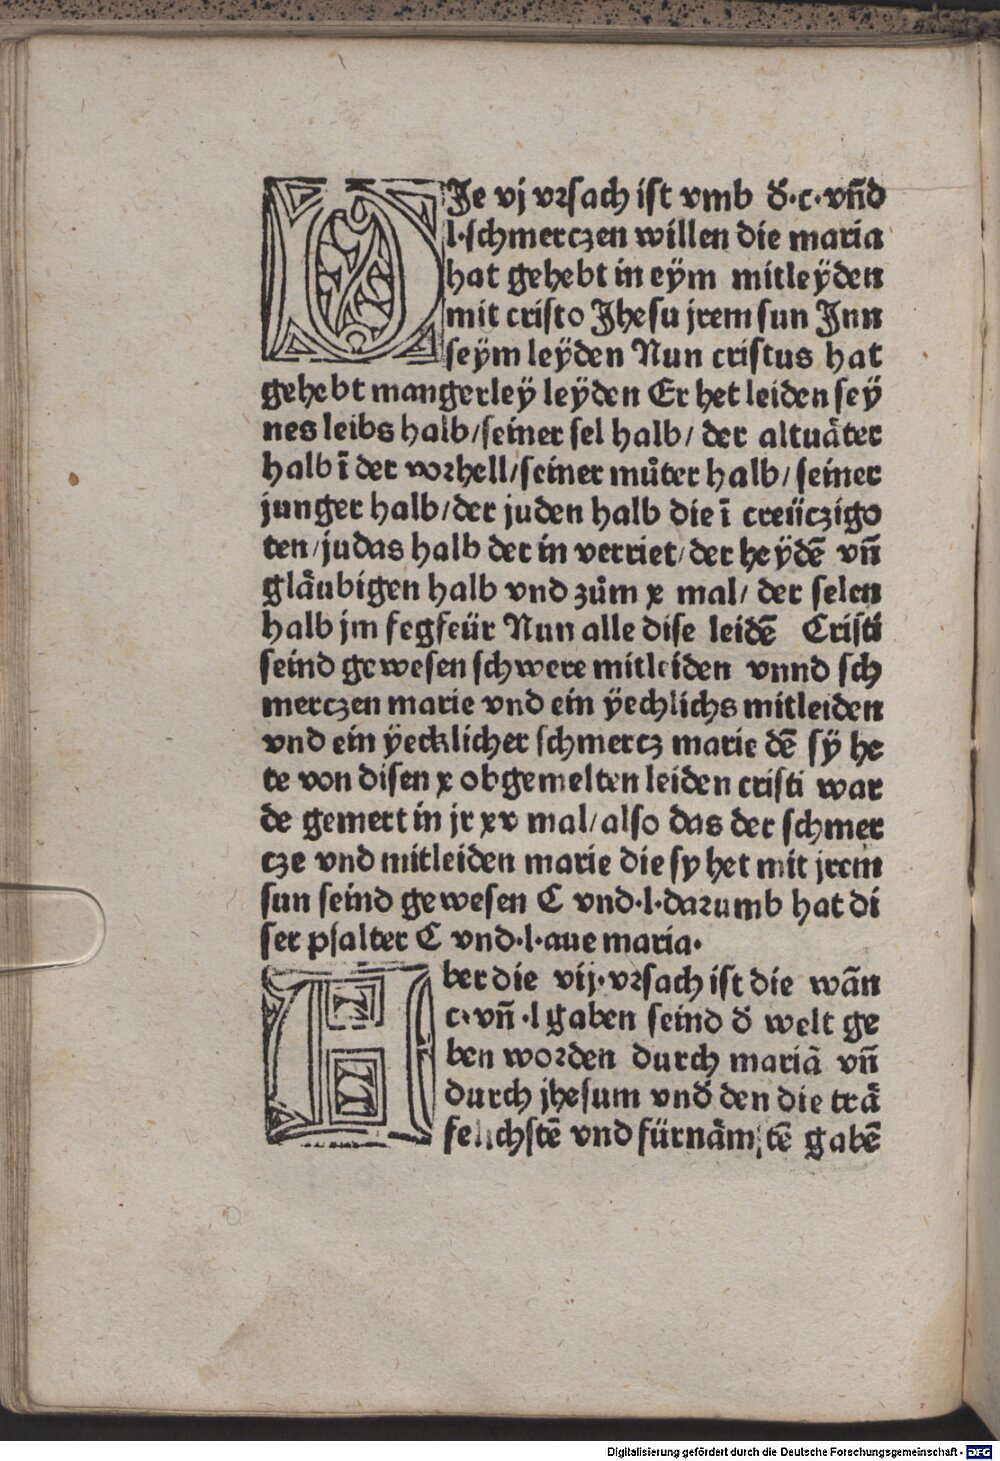 DJe vj vrsach ist vmb d̕·c·vn̄d
l·schmerczen willen die maria
hat gehebt in eÿm mitleÿden
mit cristo Jhesu jrem sun Jnn
seÿm leÿden Nun cristus hat
gehebt mangerleÿ leÿden Er het leiden seÿ
nes leibs halb/seiner sel halb/ der altuåter
halb ī der vorhell/seiner můter halb/ seiner
junger halb/der juden halb die ī creüczigo
ten/judas halb der in verriet/der heÿdē vn̄
glåubigen halb vnd zům x mal/ der selen
halb jm fegfeür Nun alle dise leidē Cristi
seind gewesen schwere mitleiden vnnd sch
merczen marie vnd ein ÿechlichs mitleiden
vnd ein ÿecklicher schmercz marie dē sÿ he
te von disen x obgemelten leiden cristi war
de gemert in jr xv mal/also das der schmer
cze vnd mitleiden marie die sy het mit jrem
sun seind gewesen C vnd·l·darumb hat di
ser psalter C vnd·l·aue maria·
Aber die vij·vrsach ist die wān
c·vn̄·l gaben seind d̕ welt ge
ben worden durch mariā vn̄
durch jhesum vnd̕ den die trå
felichstē vnd fürnåmstē gabē
Digitalisierung gefördert durch die Deutsche Forschungsgemeinschaft - DFG